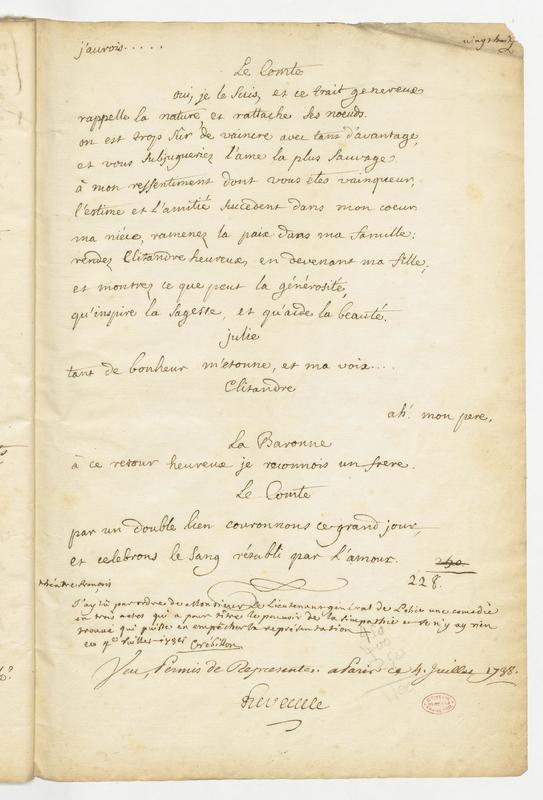 j'aurois.....
Le Comte
oui, je le suis, et ce trait genereux
rappelle la nature, et rattache ses noeuds.
on est trop sûr de vaincre avec tant d'avantage,
et vous subjugueriez l'ame la plus sauvage
à mon ressentiment dont vous êtes vainqueur,
l'estime et L'amitié succedent dans mon coeur
ma niéce, ramenez la paix dans ma famille:
rendez Clitandre heureux, en devenant ma fille,
et montrez ce que peut la générosité,
qu'inspire la sagesse, et qu'aide la beauté.
julie
tant de bonheur m'etonne, et ma voix....
Clitandre
ah! mon pere,
La Baronne
à ce retour heureux je reconnois un frere.
Le Comte
par un double lien couronnons ce grand jour,
et celebrons le Sang rétabli par L'amour.
228.
théatre françois
J'ay lû par ordre de Monsieur Le Lieutenant général de Police une comedie
en trois actes qui a pour titre le pouvoir de la simpathie et je n'y ay rien
trouvé qui puisse en empêcher la representation
ce 4e Juillet 1738 Crebillon
Veu, Permis de Representer. a Paris ce 4. Juillet 1738.